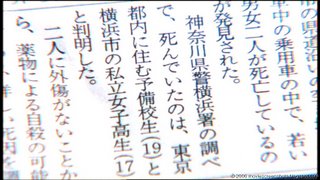 車中の乗用車の中で、若い
男女二人が死亡しているの
が発見された。
神奈川県警横浜署の調べ
で、死んでいたのは、東京
都内に住む予備校生(19)と
横浜市の私立女子高生(17)
と判明した。
二人に外傷がないことか
ら、薬物による自殺の可能